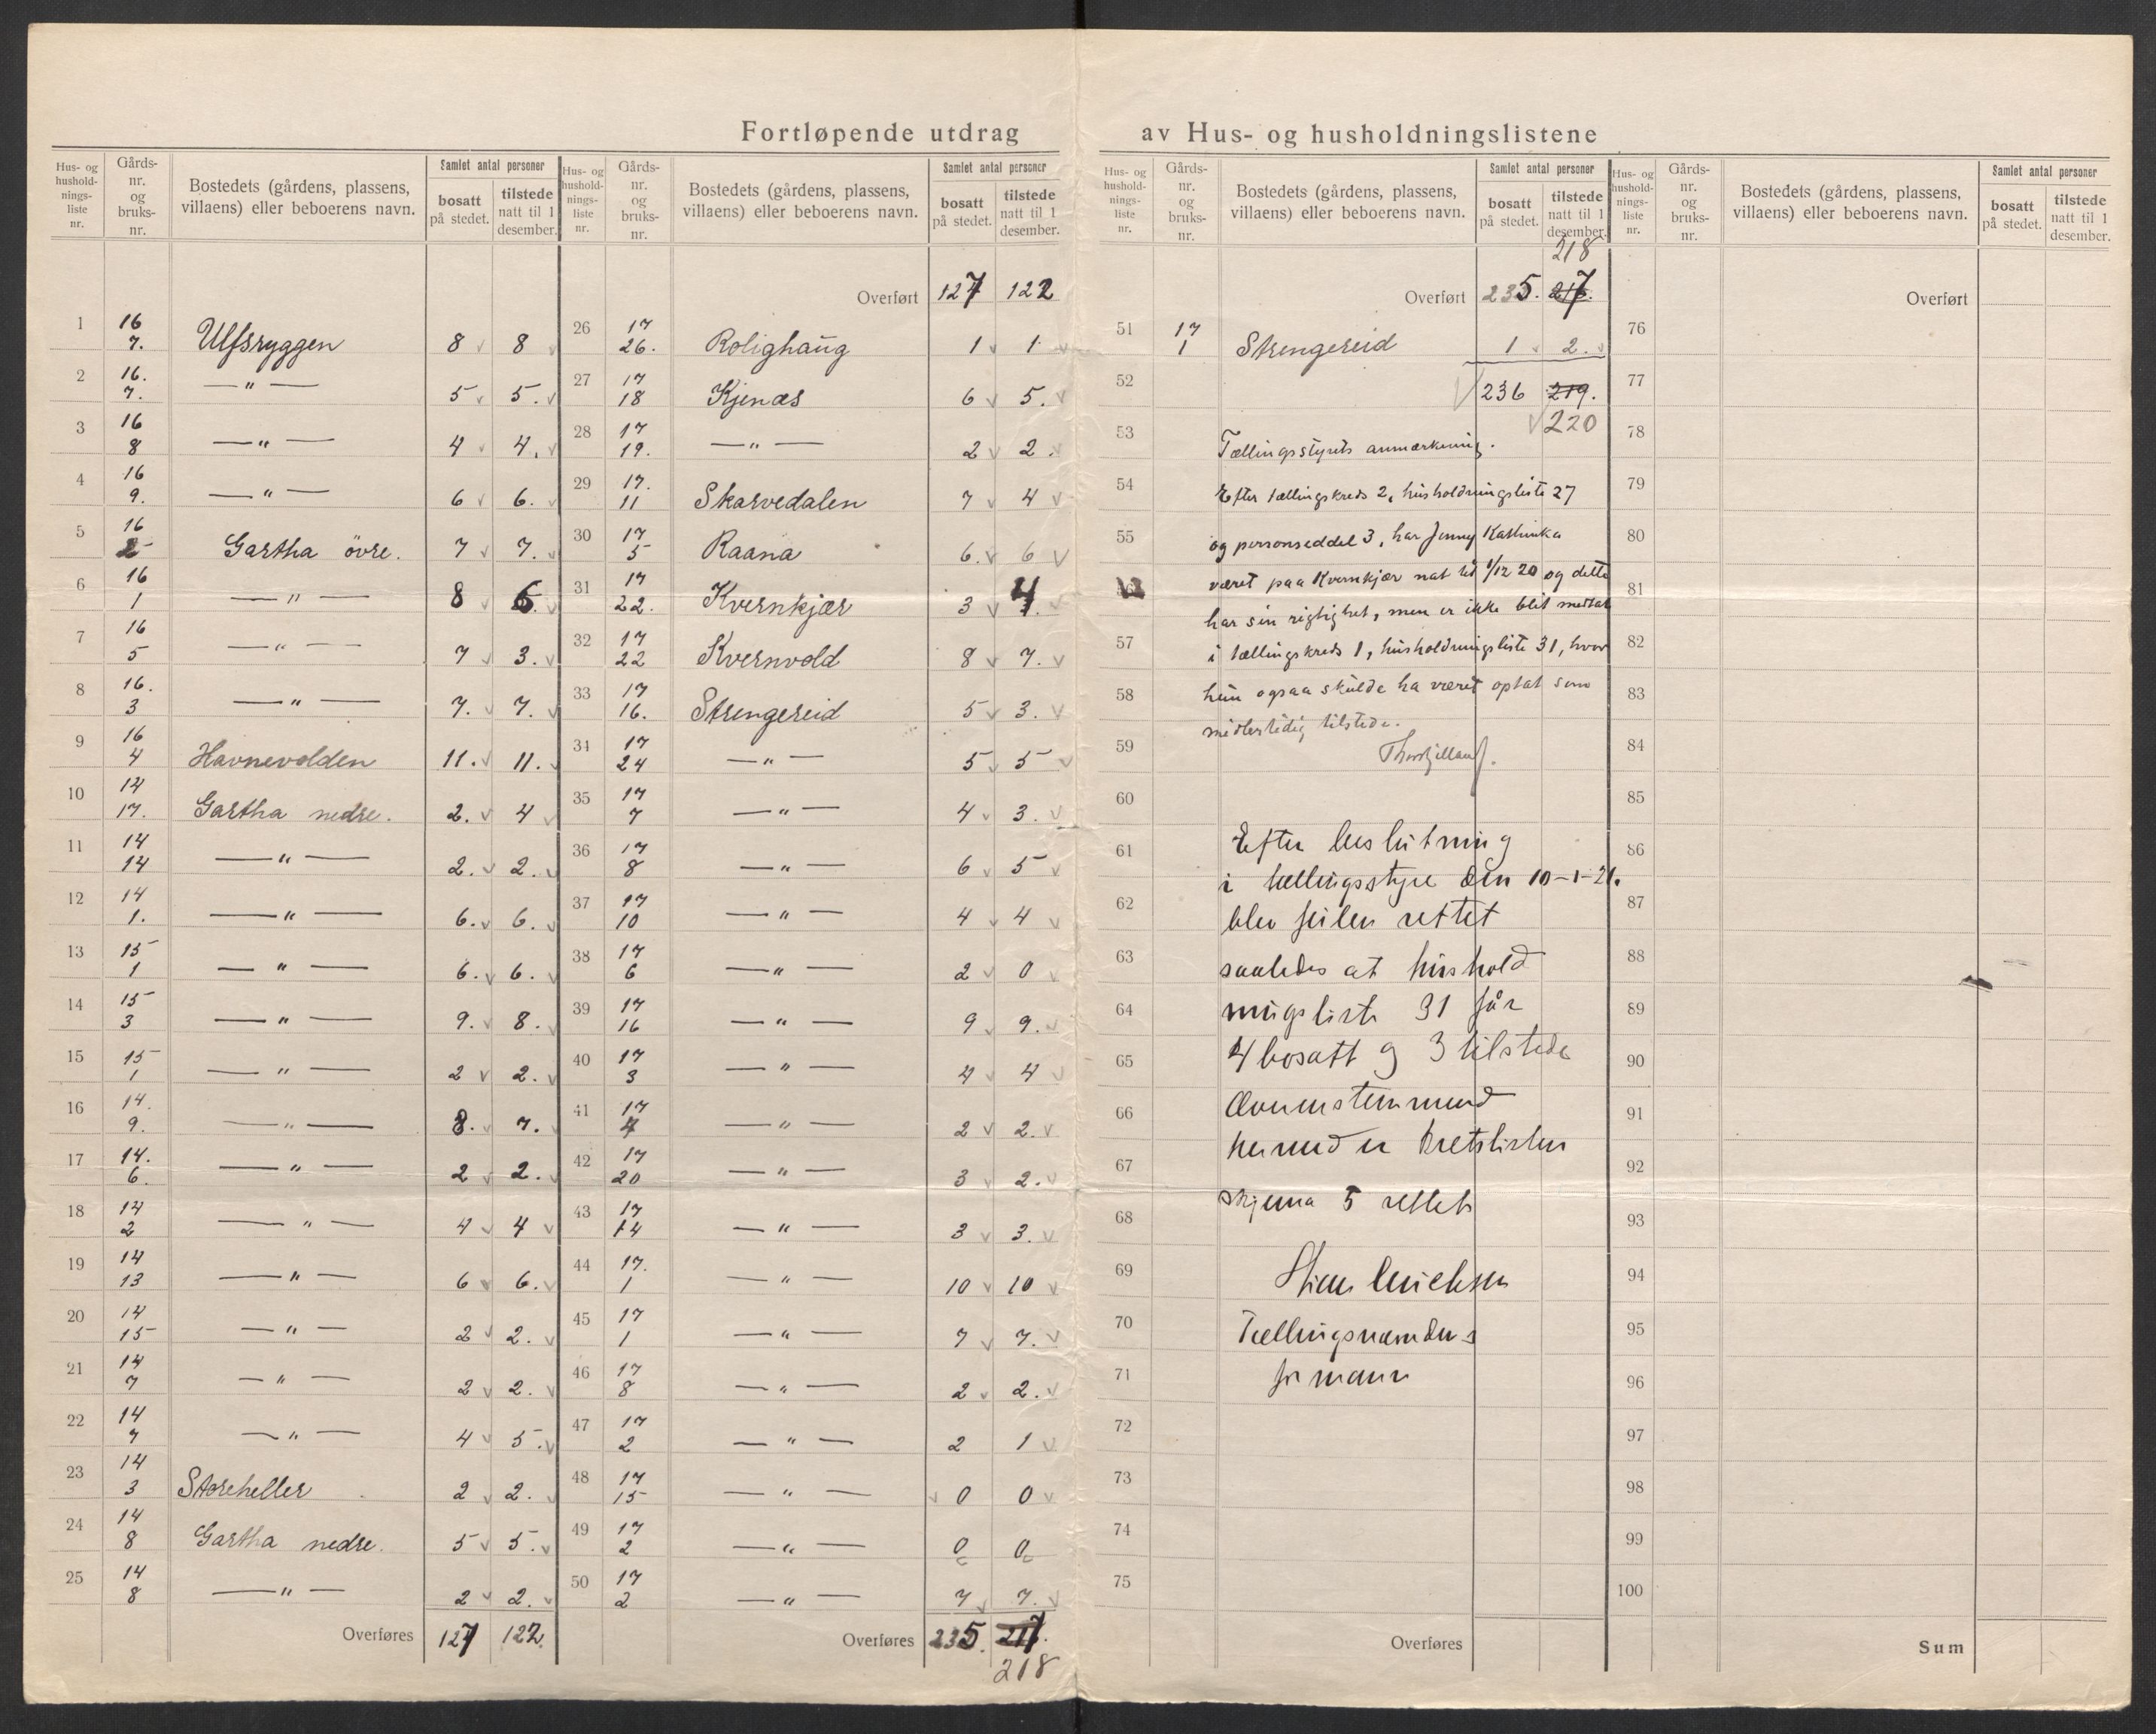 Fortløpende utdrag av Hus- og husholdningslistene
Hus- og hushold-nings-liste nr. Gårds-nr. og bruks-nr. Bostedets (gårdens, plassens, villaens) eller beboerens navn. Samlet antal personer bosatt på stedet. tilstede natt til 1 desember.
1 16 7. Ulfsryggen 8 8
2 16. 7. —"— 5 5.
3 16 8 —"— 4 4.
4 16 9. —"— 6 6.
5 16 2 Gartha övre. 7 7.
6 16 1 —"— 8 6.
7 16 5 —"— 7 3.
8 16. 3 —"— 7. 7.
9 16 4 Havnevolden 11. 11.
10 14 17. Gartha nedre. 2. 4
11 14 14 —"— 2. 2.
12 14 1. —"— 6. 6.
13 15 1 —"— 6. 6.
14 15 3 —"— 9. 8.
15 15 1 —"— 2 2.
16 14. 9. —"— 8. 7.
17 14. 6. —"— 2 2.
18 14 2 —"— 4 4
19 14 13 —"— 6 6.
20 14 15 —"— 2 2.
21 14 7 —"— 2 2.
22 14 7 —"— 4 5.
23 14 3 Storeheller 2 2.
24 14 8 Gartha nedre. 5 5.
25 14 8 —"— 2 2.
Overføres 127 122.
Hus- og hushold-nings-liste nr. Gårds-nr. og bruks-nr. Bostedets (gårdens, plassens, villaens) eller beboerens navn. Samlet antal personer bosatt på stedet. tilstede natt til 1 desember.
Overført 127 122
26 17 26. Rolighaug 1 1
27 17 18 Kjenæs 6 5.
28 17 19. —"— 2 2.
29 17. 11 Skarvedalen 7 4
30 17 5 Raana 6. 6
31 17 22. Kvernkjær 3 4
32 17 22 Kvernvold 8 7.
33 17 16. Strengereid 5 3.
34 17 24 —"— 5 5
35 17 7 —"— 4 3.
36 17 8 —"— 6 5
37 17 10 —"— 4 4
38 17 6 —"— 2 0
39 17 16 —"— 9 9.
40 17 3 —"— 4 4
41 17 4 —"— 2 2.
42 17 20 —"— 3 2.
43 17 14 —"— 3 3.
44 17. 1 —"— 10 10
45 17 1 —"— 7 7.
46 17 8 —"— 2 2.
47 17 2 —"— 2 1
48 17 15 —"— 0 0
49 17 2 —"— 0 0
50 17 2 —"— 7 7.
Overføres 235. 217.
218
Hus- og hushold-nings-liste nr. Gårds-nr. og bruks-nr. Bostedets (gårdens, plassens, villaens) eller beboerens navn. Samlet antal personer bosatt på stedet. tilstede natt til 1 desember.
218
Overført 235. 217.
51 17 1 Strengereid 1 2.
52 236 219.
220
53 Tællingsstyrets anmærkning.
54 Efter tællingskreds 2, husholdningsliste 27
55 og personseddel 3, har Jenny Kathinka
været paa Kvernkjær nat til 1/12 20 og dette
har sin rigtighet, men er ikke blit medtat
57 i tællingskreds 1, husholdningsliste 31, hvor
58 hun ogsaa skulde ha været optat som
midlertidig tilstede.
59
60
61 Efter beslutning
i tællingsstyre den 10-1-21.
62 blev feilen rettet
63 saaledes at hushold
64 ningsliste 31 får
65 4 bosatt og 3 tilstede
66 Overenstemmend
67 hermed er kretslisten
68 skjema 5 rettet
69
70 Tællingsnemdens
71 formann
72
73
74
75
Overføres
Hus- og hushold-nings-liste nr. Gårds-nr. og bruks-nr. Bostedets (gårdens, plassens, villaens) eller beboerens navn. Samlet antal personer bosatt på stedet. tilstede natt til 1 desember.
Overført
76
77
78
79
80
81
82
83
84
85
86
87
88
89
90
91
92
93
94
95
96
97
98
99
100
Sum